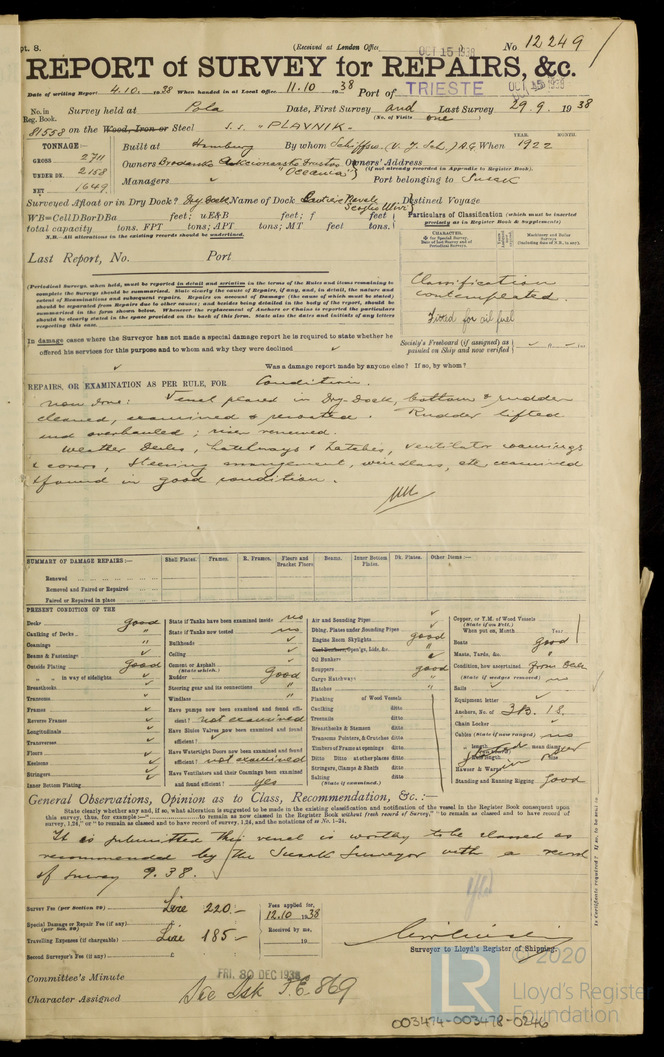 pt. 8.
(Received at London Office OCT 15 1938 ) No 12249
REPORT of SURVEY for REPAIRS, &c.
Date of writing Report 4.10. 1938 When handed in at Local Office 11.10 1938 Port of TRIESTE
No. in Reg. Book. Survey held at Pola Date, First Survey and Last Survey 29.9. 1938
(No. of Visits one )
81558 on the Wood, Iron or Steel S.S. "PLAVNIK"
TONNAGE
GROSS 2711
UNDER DK. 2158
NET 1649
YEAR. MONTH.
Built at Hamburg By whom When 1922
Owners "Oceania" Owners' Address
(if not already recorded in Appendix to Register Book).
Managers Port belonging to Susak
Surveyed Afloat or in Dry Dock? Dry Dock Name of Dock Destined Voyage
WB=CellDBorDBa feet; uE&B feet; f feet
total capacity tons. FPT tons; APT tons; MT feet tons.
N.B.—All alterations in the existing records should be underlined.
Particulars of Classification (which must be inserted
precisely as in Register Book & Supplements)
Last Report, No. Port
(Periodical Surveys, when held, must be reported in detail and seriatim in the terms of the Rules and items remaining to
complete the Surveys should be summarised. State clearly the cause of Repairs, if any, and, in detail, the nature and
extent of Examinations and subsequent repairs. Repairs on account of Damage (the cause of which must be stated)
should be separated from Repairs due to other causes; and besides being detailed in the body of the report, should be
summarised in the form shown below. Whenever the replacement of Anchors or Chains is reported the particulars
should be clearly stated in the space provided on the back of this form. State also the dates and initials of any letters
respecting this case.
Classification
contemplated.
Fitted for oil fuel
In damage cases where the Surveyor has not made a special damage report he is required to state whether he
offered his services for this purpose and to whom and why they were declined
Society's Freeboard (if assigned) as
painted on Ship and now verified
Was a damage report made by anyone else? If so, by whom?
REPAIRS, OR EXAMINATION AS PER RULE, FOR Condition.
now done: Vessel placed in Dry-Dock, bottom & rudder
cleaned, examined & recoated. Rudder lifted
and overhauled; riser renewed.
Weather Decks, hatchways & hatches, ventilator coamings
& covers, steering arrangement, windlass, etc examined
& found in good condition.
SUMMARY OF DAMAGE REPAIRS:— Shell Plates. Frames. R. Frames. Floors and Bracket Floors Beams. Inner Bottom Plates. Dk. Plates. Other Items:—
Renewed
Removed and Faired or Repaired
Faired or Repaired in place
PRESENT CONDITION OF THE
Decks good
Caulking of Decks "
Coamings "
Beams & Fastenings
Outside Plating good
" " in way of sidelights
Breasthooks
Transoms
Frames
Reverse Frames
Longitudinals
Transverses
Floors
Keelsons
Stringers
Inner Bottom Plating
State if Tanks have been examined inside no
State if Tanks now tested no
Bulkheads
Ceiling
Cement or Asphalt
(State which.)
Rudder good
Steering gear and its connections "
Windlass "
Have pumps now been examined and found efficient? not examined
Have Sluice Valves now been examined and found efficient?
Have Watertight Doors now been examined and found efficient? not examined
Have Ventilators and their Coamings been examined and found efficient? yes
Air and Sounding Pipes
Dblng. Plates under Sounding Pipes
Engine Room Skylights good
Oil Bunkers
Scuppers good
Cargo Hatchways "
Hatches "
Planking of Wood Vessels
Caulking ditto
Treenails ditto
Breasthooks & Stemson ditto
Transoms Pointers, & Crutches ditto
Timbers of Frame at openings ditto
Ditto Ditto at other places ditto
Stringers, Clamps & Shelfs ditto
Salting ditto
(State if examined.)
Copper, or Y.M. of Wood Vessels
(State if on Felt.)
When put on, Month Year
Boats good
Masts, Yards, &c. "
Condition, how ascertained from deck
(State if wedges removed) no
Sails
Equipment letter
Anchors, No. of 3B. 1S.
Chain Locker
Cables (State if now ranged) no
" length mean diamr.
Hawser & Warps
Standing and Running Rigging good
General Observations, Opinion as to Class, Recommendation, &c.:—
State clearly whether any, and if so, what alteration is suggested to be made in the existing classification and notification of the vessel in the Register Book consequent upon
this survey, thus, for example:—"to remain as now classed in Register Book without fresh record of Survey," "to remain as classed and to have record of
survey, 1,24," or "to remain as classed and to have record of survey, 1.24, and the notations of ss No. 1-24.
It is submitted this vessel is worthy to be classed as
recommended by the Susak Surveyor with a record
of survey 9.38.
Survey Fee (per Section 29) Lire 220.-
Fees applied for,
12.10 1938
Special Damage or Repair Fee (if any)
(per Sec. 29)
Travelling Expenses (if chargeable) Lire 185.-
Received by me,
19
Second Surveyor's Fee (if any) £
Surveyor to Lloyd's Register of Shipping.
Committee's Minute FRI. 30 DEC 1938
Character Assigned See Ssk F.E. 869
LR
© 2020
Lloyd's Register
Foundation
003474-003478-0246